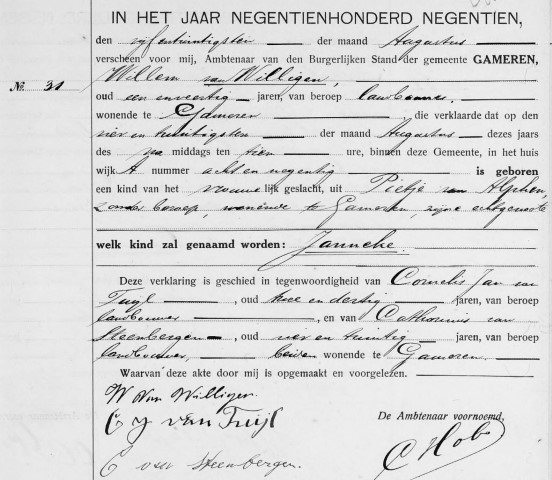 IN HET JAAR NEGENTIENHONDERD NEGENTIEN,
den vijfentwintigsten der maand Augustus
verscheen voor mij, Ambtenaar van den Burgerlijken Stand der gemeente GAMEREN,
No. 31 Willem van Willigen,
oud een en veertig jaren, van beroep landbouwer,
wonende te Gameren, die verklaarde dat op den
vier en twintigsten der maand Augustus dezes jaars
des na middags ten tien ure, binnen deze Gemeente, in het huis
wijk A nummer acht en negentig is geboren
een kind van het vrouwelijk geslacht, uit Pietje van Alphen,
zonder beroep, wonende te Gameren, zijne echtgenoote
welk kind zal genaamd worden: Janneke.
Deze verklaring is geschied in tegenwoordigheid van Cornelis Jan van
Tuyl, oud twee en dertig jaren, van beroep
landbouwer, en van Cathorinus van
Steenbergen, oud vier en twintig jaren, van beroep
landbouwer, beiden wonende te Gameren.
Waarvan deze akte door mij is opgemaakt en voorgelezen.
W van Willigen.
C J van Tuijl
De Ambtenaar voornoemd,
C van Steenbergen.